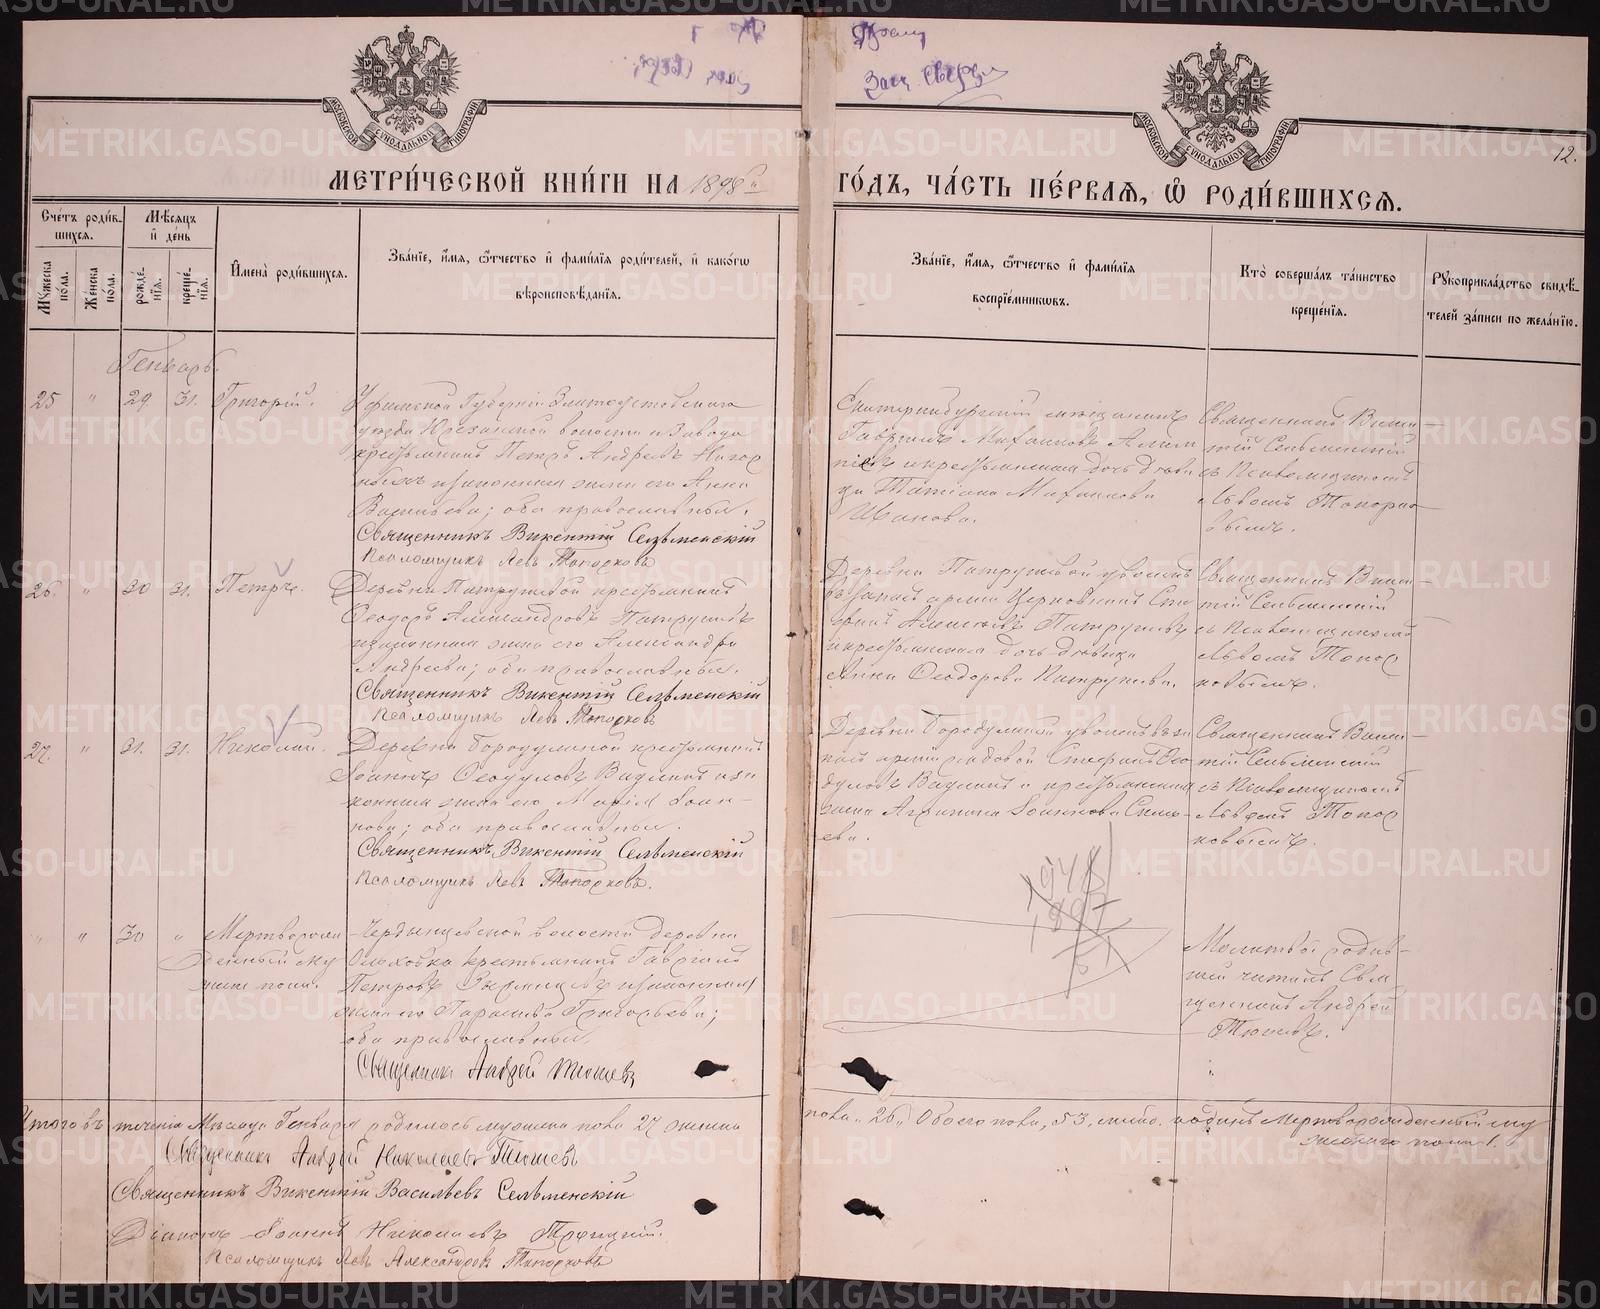 12.
МЕТРИЧЕСКОЙ КНИГИ НА 1898й ГОДЪ, ЧАСТЬ ПЕРВАЯ, Ѿ РОДИВШИХСЯ.
МОСКОВСКОЙ СУНОДАЛЬНОЙ ТИПОГРАФИИ
МОСКОВСКОЙ СУНОДАЛЬНОЙ ТИПОГРАФИИ
Счетъ родившихся.
Мужеска пола.
Женска пола.
Мѣсяцъ и день
рожденія.
крещенія.
Имена родившихся.
Званіе, имя, ѿчество и фамилія родителей, и какогѡ
вѣроисповѣданія.
Званіе, имя, ѿчество и фамилія
воспріемниковъ.
Кто совершалъ таинство
крещенія.
Рукоприкладство свидѣ-
телей записи по желанію.
Генварь.
25 " 29. 31. Григорій.
Уфимской Губерніи Златоустовскаго
уѣзда Юрезанской волости и завода
крестьянинъ Петръ Андреевъ
законная жена его Анна
Васильева; оба православные.
Священникъ Викентій Сельменскій
Псаломщикъ Левъ Топорковъ
Екатеринбургскій мѣщанинъ
Гавріилъ Михаиловъ
и крестьянская дочь дѣви
ца Татіана Михаилова
Иванова.
Священникъ Викен
тій Сельменскій
съ Псаломщикомъ
Львомъ Топорко
вымъ.
26. " 30 31. Петръ.
Деревни Патрушевой крестьянинъ
Ѳеодоръ Александровъ Патрушевъ
и законная жена его Александра
Андреева; оба православные.
Священникъ Викентій Сельменскій
Псаломщикъ Левъ Топорковъ
Деревни Патрушевой уволенъ
въ запасъ арміи
Алексѣевъ Патрушевъ
и крестьянская дочь дѣвица
Анна Ѳеодорова Патрушева.
Священникъ Викен
тій Сельменскій
съ Псаломщикомъ
Львомъ Топор
ковымъ.
27. " 31. 31. Николай.
Деревни Бородулиной крестьянинъ
Іоаннъ Ѳеодуловъ и за
конная жена его Марія Іоан-
нова; оба православные.
Священникъ Викентій Сельменскій
Псаломщикъ Левъ Топорковъ.
Деревни Бородулиной уволенъ въ за
пасъ арміи рядовой Стефанъ Ѳео
дуловъ и крестьянская
жена Агрипина Іоаннова
ева.
Священникъ Викен
тій Сельменскій
съ Псаломщикомъ
Львомъ Топор
ковымъ.
1948
1897
51
" " 30 " Мертворож
денный му
жеск. пола.
волости деревни
Ольховки крестьянинъ Гавріилъ
Петровъ и законная
жена его Параскева Григорьева;
оба православные.
Священникъ Андрей Тюшевъ
Молитвы родив-
шей читалъ Свя
щенникъ Андрей
Тюшевъ.
Итого въ теченіи мѣсяца Генваря родилось мужска пола 27 женска
пола „26„ Обоего пола „53„ одинъ мертворожденный му
жескаго пола 1.
Священникъ Андрей Николаевъ Тюшевъ
Священникъ Викентій Васильевъ Сельменскій
Діаконъ Іоаннъ Николаевъ Троицкій.
Псаломщикъ Левъ Александровъ Топорковъ
METRIKI.GASO-URAL.RU